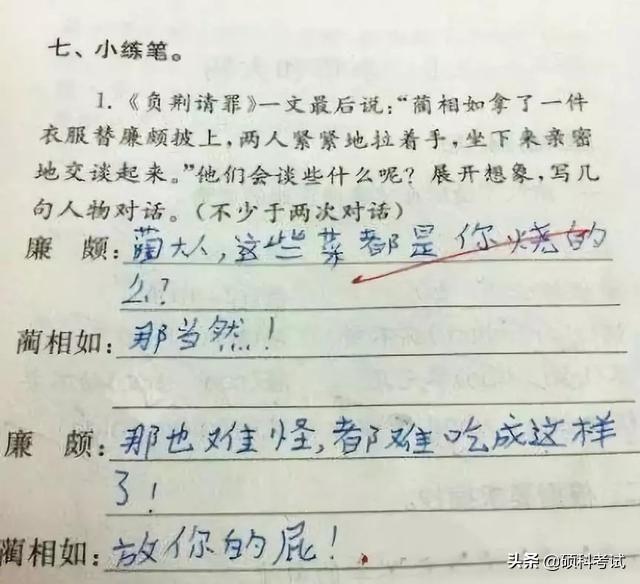 七、小练笔。
1.《负荆请罪》一文最后说：“蔺相如拿了一件
衣服替廉颇披上，两人紧紧地拉着手，坐下来亲密
地交谈起来。”他们会谈些什么呢？展开想象，写几
句人物对话。（不少于两次对话）
廉 颇：蔺大人，这些菜都是你烧的
么？
蔺相如：那当然！
廉 颇：那也难怪，都难吃成这样
了！
蔺相如：放你的屁！
头条 @硕科考试